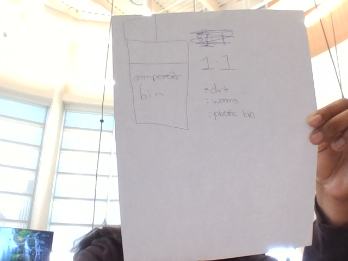 1.1
composter
bin
: dirt
: worms
: plastic bin